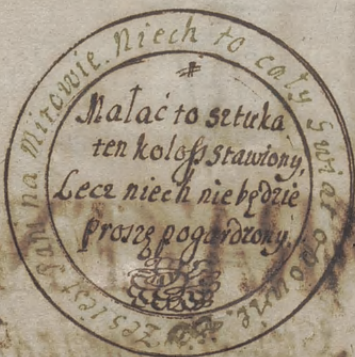 Niech to cały Swiat opowie, Zes iest Pan na Mirowie.
#
Małać to sztuka
ten koloss stawiony,
Lecz niech nie będzie
Proszę pogardzony.